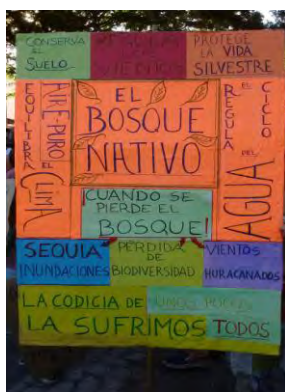 CONSERVA
EL
SUELO
PROTEGE
LA VIDA
SILVESTRE
EQUILIBRA EL CLIMA
AIRE PURO
EL
BOSQUE
NATIVO
REGULA EL CICLO
DEL AGUA
¡CUANDO SE
PIERDE EL
BOSQUE!
SEQUIA
INUNDACIONES
PERDIDA
DE
BIODIVERSIDAD
VIENTOS
HURACANADOS
LA CODICIA DE UNOS POCOS
LA SUFRIMOS TODOS